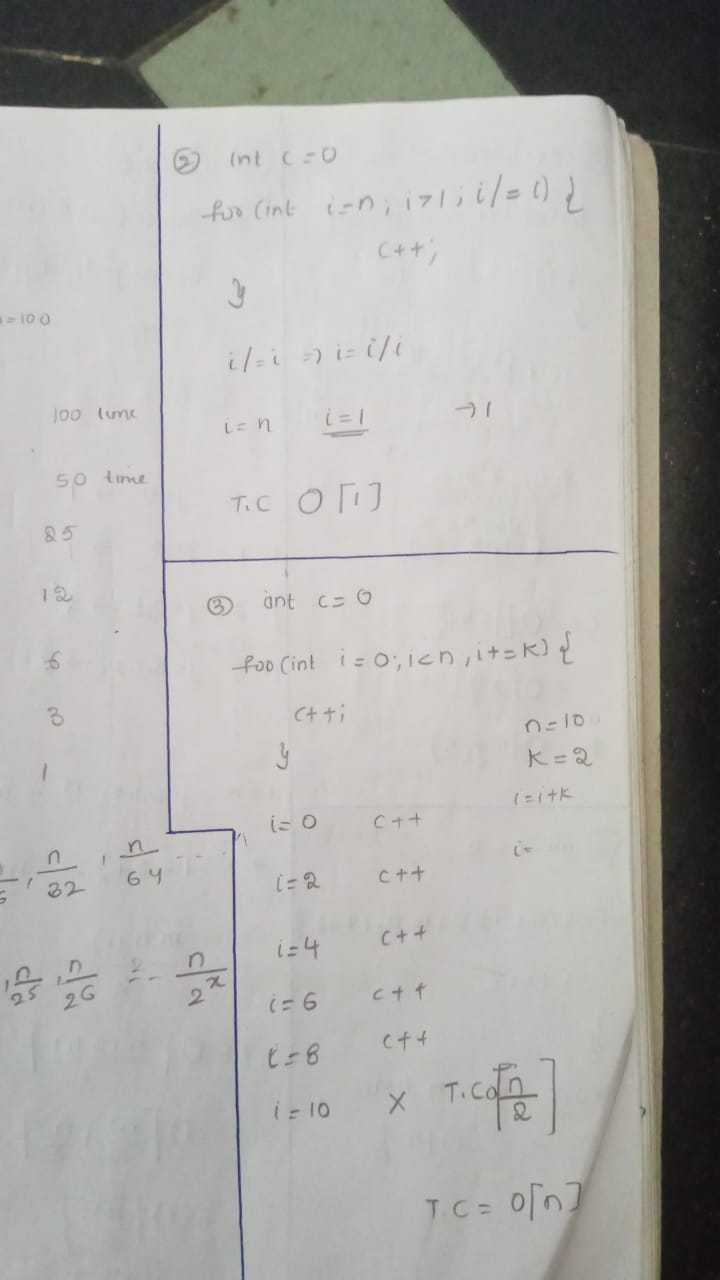 n=100
100 time
50 time
25
12
6
3
1
, n/32 , n/64 ---
, n/2^5 , n/2^6 -- n/2^x
② int c=0
foo (int i=n; i>1; i/= i) {
c++;
}
i/=i => i= i/i
i=n i=1 →1
T.C O[1]
③ int c= 0
foo (int i=0; i<n, i+=k) {
c++;
}
n=10
k=2
i=i+k
i=
i= 0 c++
i=2 c++
i=4 c++
i=6 c++
i=8 c++
i=10 X T.C O[n/2]
T.C = O[n]